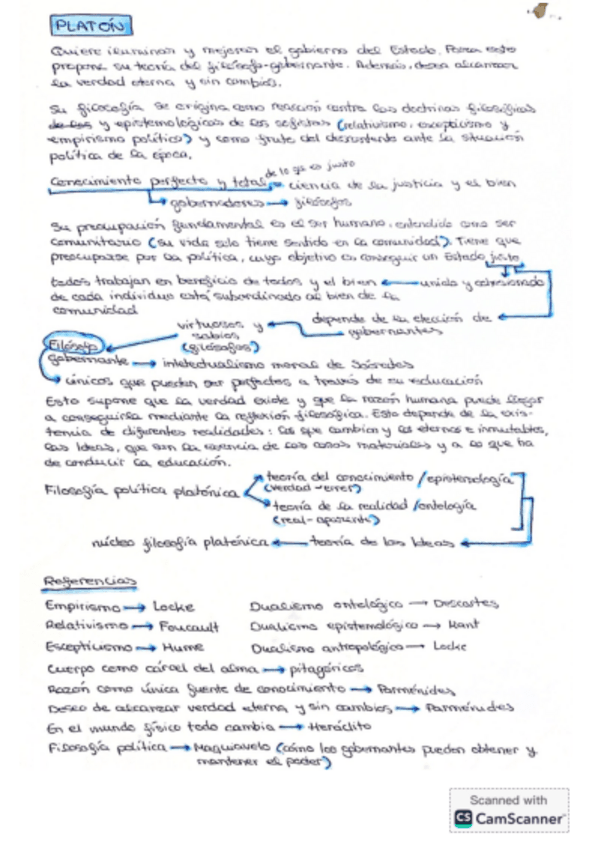 PLATÓN
Quiere iluminar y mejorar el gobierno del Estado. Para esto
propone su teoría del filósofo-gobernante. Además, desea alcanzar
la verdad eterna y sin cambios.
Su filosofía se origina como reacción contra las doctrinas filosóficas
de los y epistemológicas de los sofistas (relativismo, escepticismo y
empirismo político) y como fruto del descontento ante la situación
política de la época.
de lo qe es justo
Conocimiento perfecto y total → ciencia de la justicia y el bien
→ gobernadores → filósofos
Su preocupación fundamental es el ser humano, entendido como ser
comunitario (su vida solo tiene sentido en la comunidad). Tiene que
preocuparse por la política, cuyo objetivo es conseguir un Estado justo
todos trabajan en beneficio de todos y el bien ← unido y cohesionado
de cada individuo está subordinado al bien de la
comunidad
depende de la elección de ←
gobernantes
virtuosos y
sabios
(filósofos)
Filósofo
gobernante → intelectualismo moral de Sócrates
→ únicos que pueden ser perfectos a través de su educación
Esto supone que la verdad existe y que la razón humana puede llegar
a conseguirla mediante la reflexión filosófica. Esto depende de la exis-
tencia de diferentes realidades: las que cambian y las eternas e inmutables,
las Ideas, que son la esencia de las cosas materiales y a lo que ha
de conducir la educación.
Filosofía política platónica
teoría del conocimiento/epistemología
(verdad-error)
teoría de la realidad/ontología
(real-aparente)
núcleo filosofía platónica ← teoría de las Ideas ←
Referencias
Empirismo → Locke Dualismo ontológico → Descartes
Relativismo → Foucault Dualismo epistemológico → Kant
Escepticismo → Hume Dualismo antropológico → Locke
Cuerpo como cárcel del alma → pitagóricos
Razón como única fuente de conocimiento → Parménides
Deseo de alcanzar verdad eterna y sin cambios → Parménides
En el mundo físico todo cambia → Heráclito
Filosofía política → Maquiavelo (cómo los gobernantes pueden obtener y
mantener el poder)
Scanned with
CS CamScanner